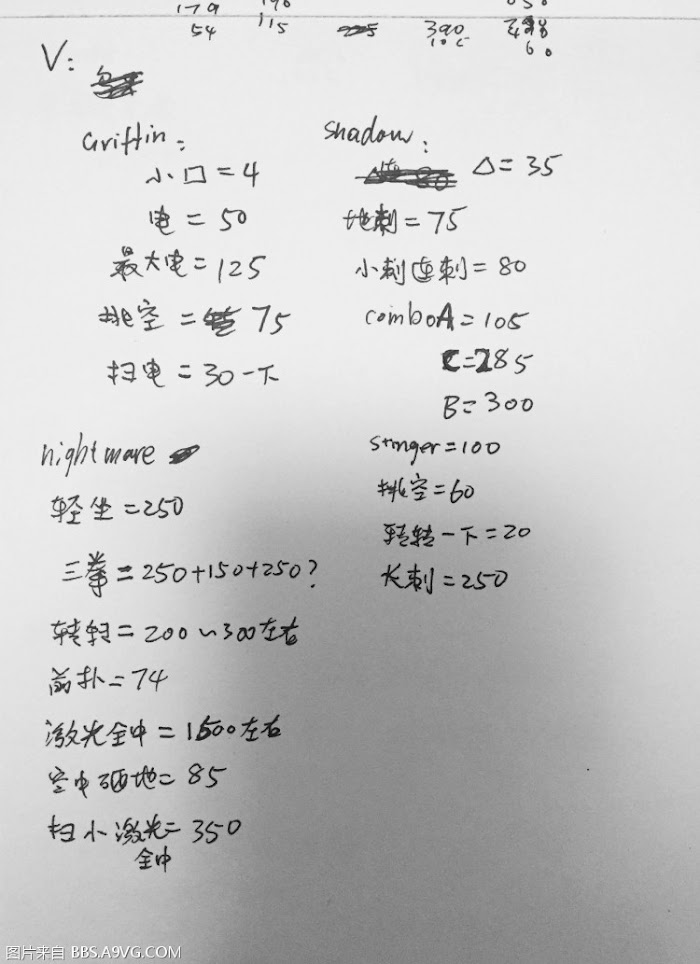 179
54
115
390
105
60
V:
Griffin:
小口=4
电=50
最大电=125
挑空=75
扫电=30一下
Shadow:
△=35
地刺=75
小刺连刺=80
comboA=105
C=285
B=300
stinger=100
挑空=60
转转一下=20
长刺=250
nightmare
轻坐=250
三拳=250+150+250?
转转=200~300左右
前扑=74
激光全中=1500左右
空中砸地=85
扫小激光=350
全中
图片来自 BBS.A9VG.COM